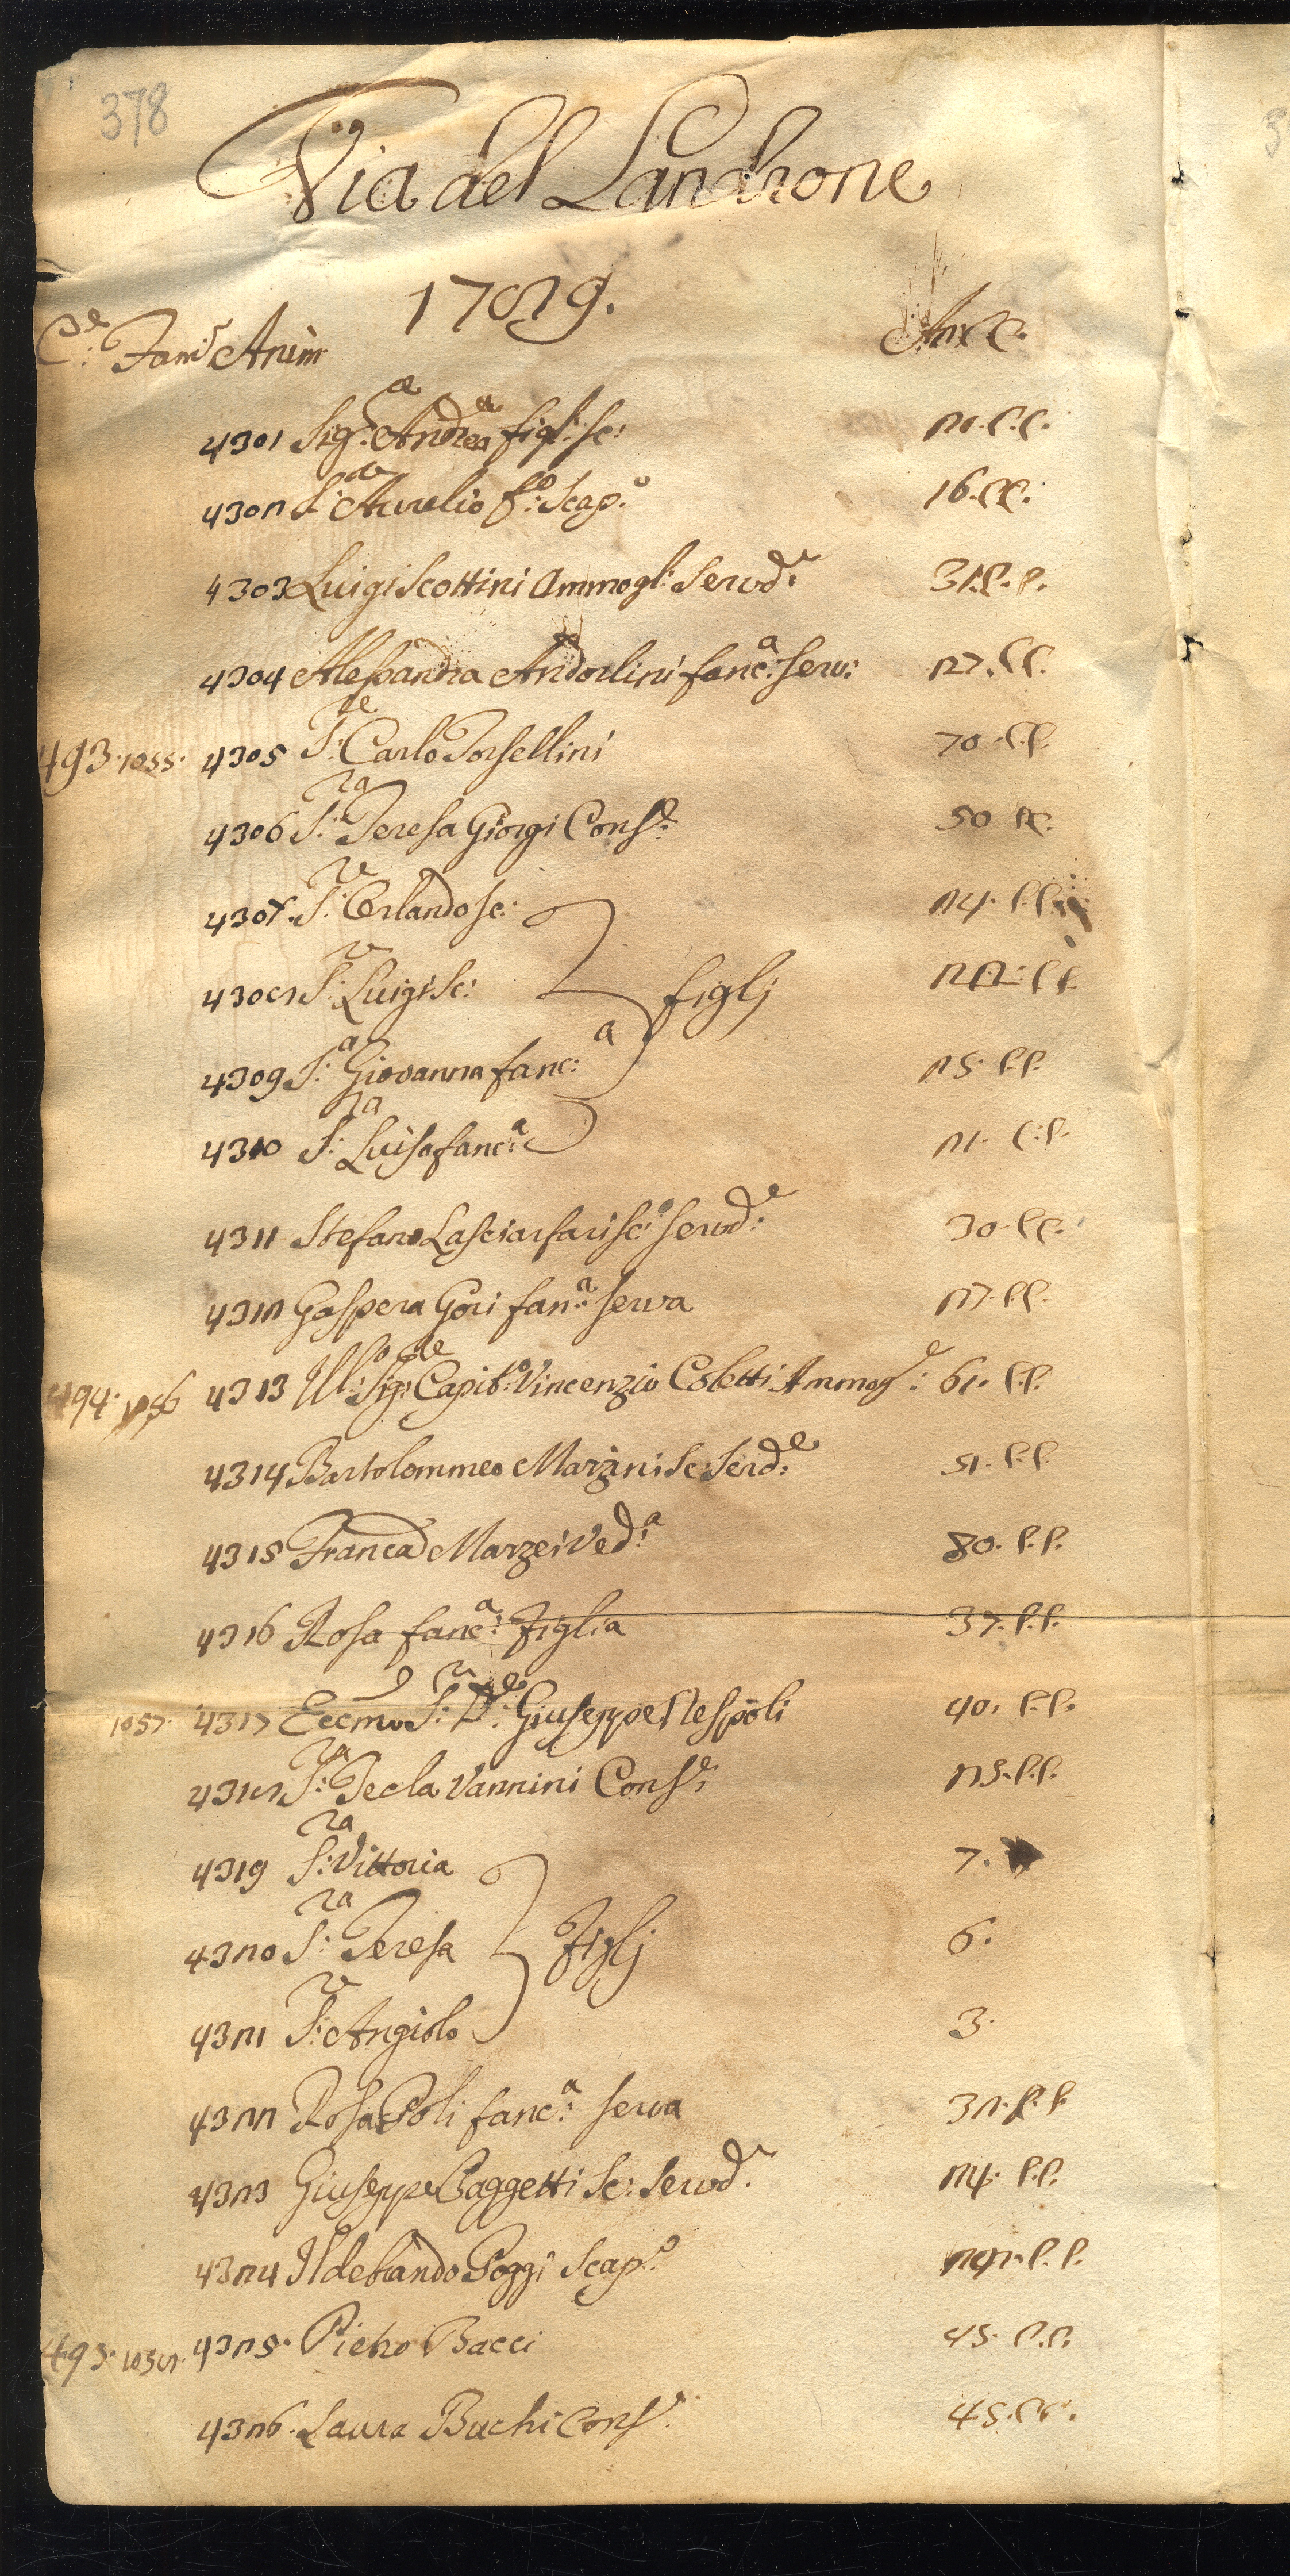 378
Via del Landrone
1782.
C.e Fam.e Anim Anni C.
4301 Sig.re Andrea figl: sc: 21. C.C.
4302 S.re Aurelio f.o: Scap.o 16. C.C.
4303 Luigi Scottini Ammogl: Serv.de 31. C.C.
4304 Alessandra Andorlini fanc.a: Serv: 27. C.C.
493. 1055. 4305 S.re Carlo Torsellini 70. C.C.
4306 S.ra Teresa Giorgi Cons.e 50 C.C.
4307. S.re Orlando sc: 24. C.C.
4308 S.re Luigi Sc: figlj 22. C.C.
4309 S.a Giovanna fanc:a 25. C.C.
4310 S.ra Luisa fanc:a 21. C.C.
4311 Stefano Lasciarfari sc:o Serv.de 30. C.C.
4312 Gaspera Gori fan.a: Serva 27. C.C.
494. 1056 4313 Ill.o Sig.re Capit.o Vincenzio Coletti Ammog.e: 61. C.C.
4314 Bartolommeo Marzini Sc: Serd.e: 51. C.C.
4315 Franca Marzei Ved.a 80. C.C.
4316 Rosa fanc.a: Figlia 37. C.C.
1057. 4317 Eccmo S.r D.re Giuseppe Nespoli 40. C.C.
4318 S.ra Tecla Vannini Cons.e: 25. C.C.
4319 S.ra Vittoria 7.
4320 S.ra Teresa Figlj 6.
4321 S.re Angiolo 3.
4322 Rosa Poli fanc.a: Serva 32. C.C.
4323 Giuseppe Baggetti Sc: Serv.de 24. C.C.
4324 Ildebrando Poggi Scap.o C.C.
495. 1058. 4325. Pietro Bacci 45. C.C.
4326. Laura Buchi Cons.e 45. C.C.